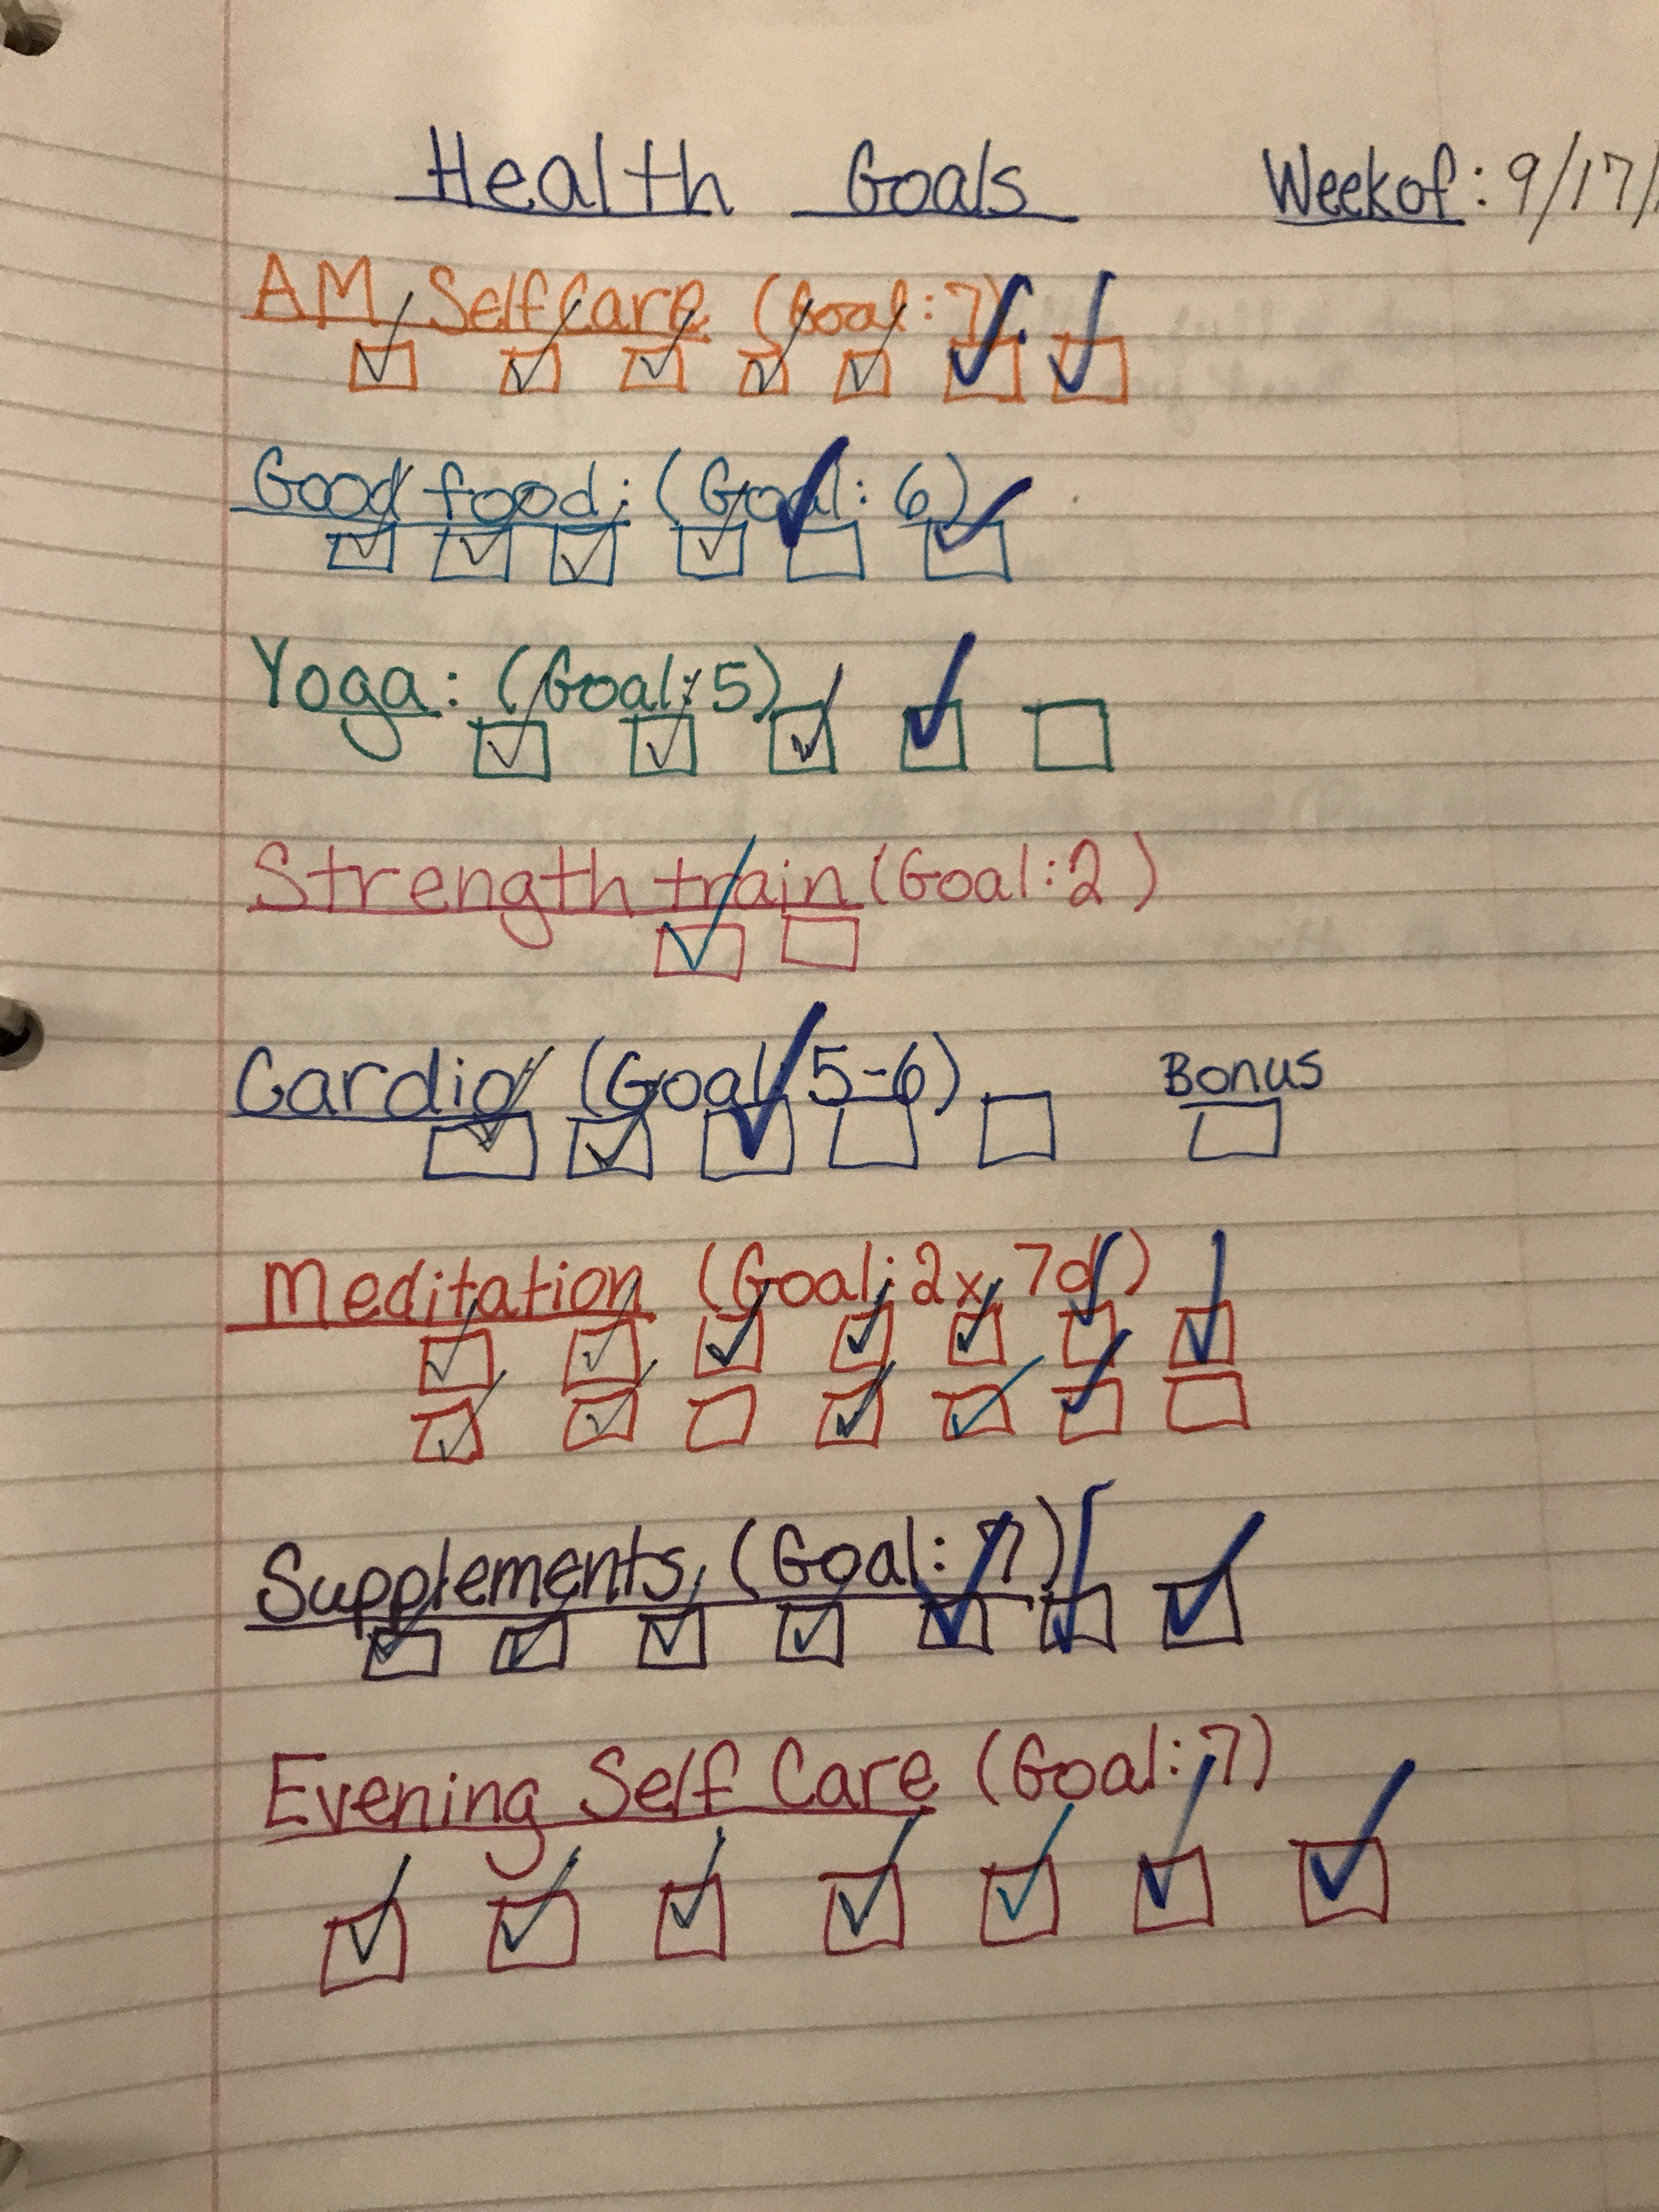 Health Goals Week of: 9/17/
AM Self Care (Goal: 7)
Good food: (Goal: 6)
Yoga: (Goal: 5)
Strength train (Goal: 2)
Cardio (Goal: 5-6) Bonus
Meditation (Goal: 2x, 7d)
Supplements (Goal: 7)
Evening Self Care (Goal: 7)